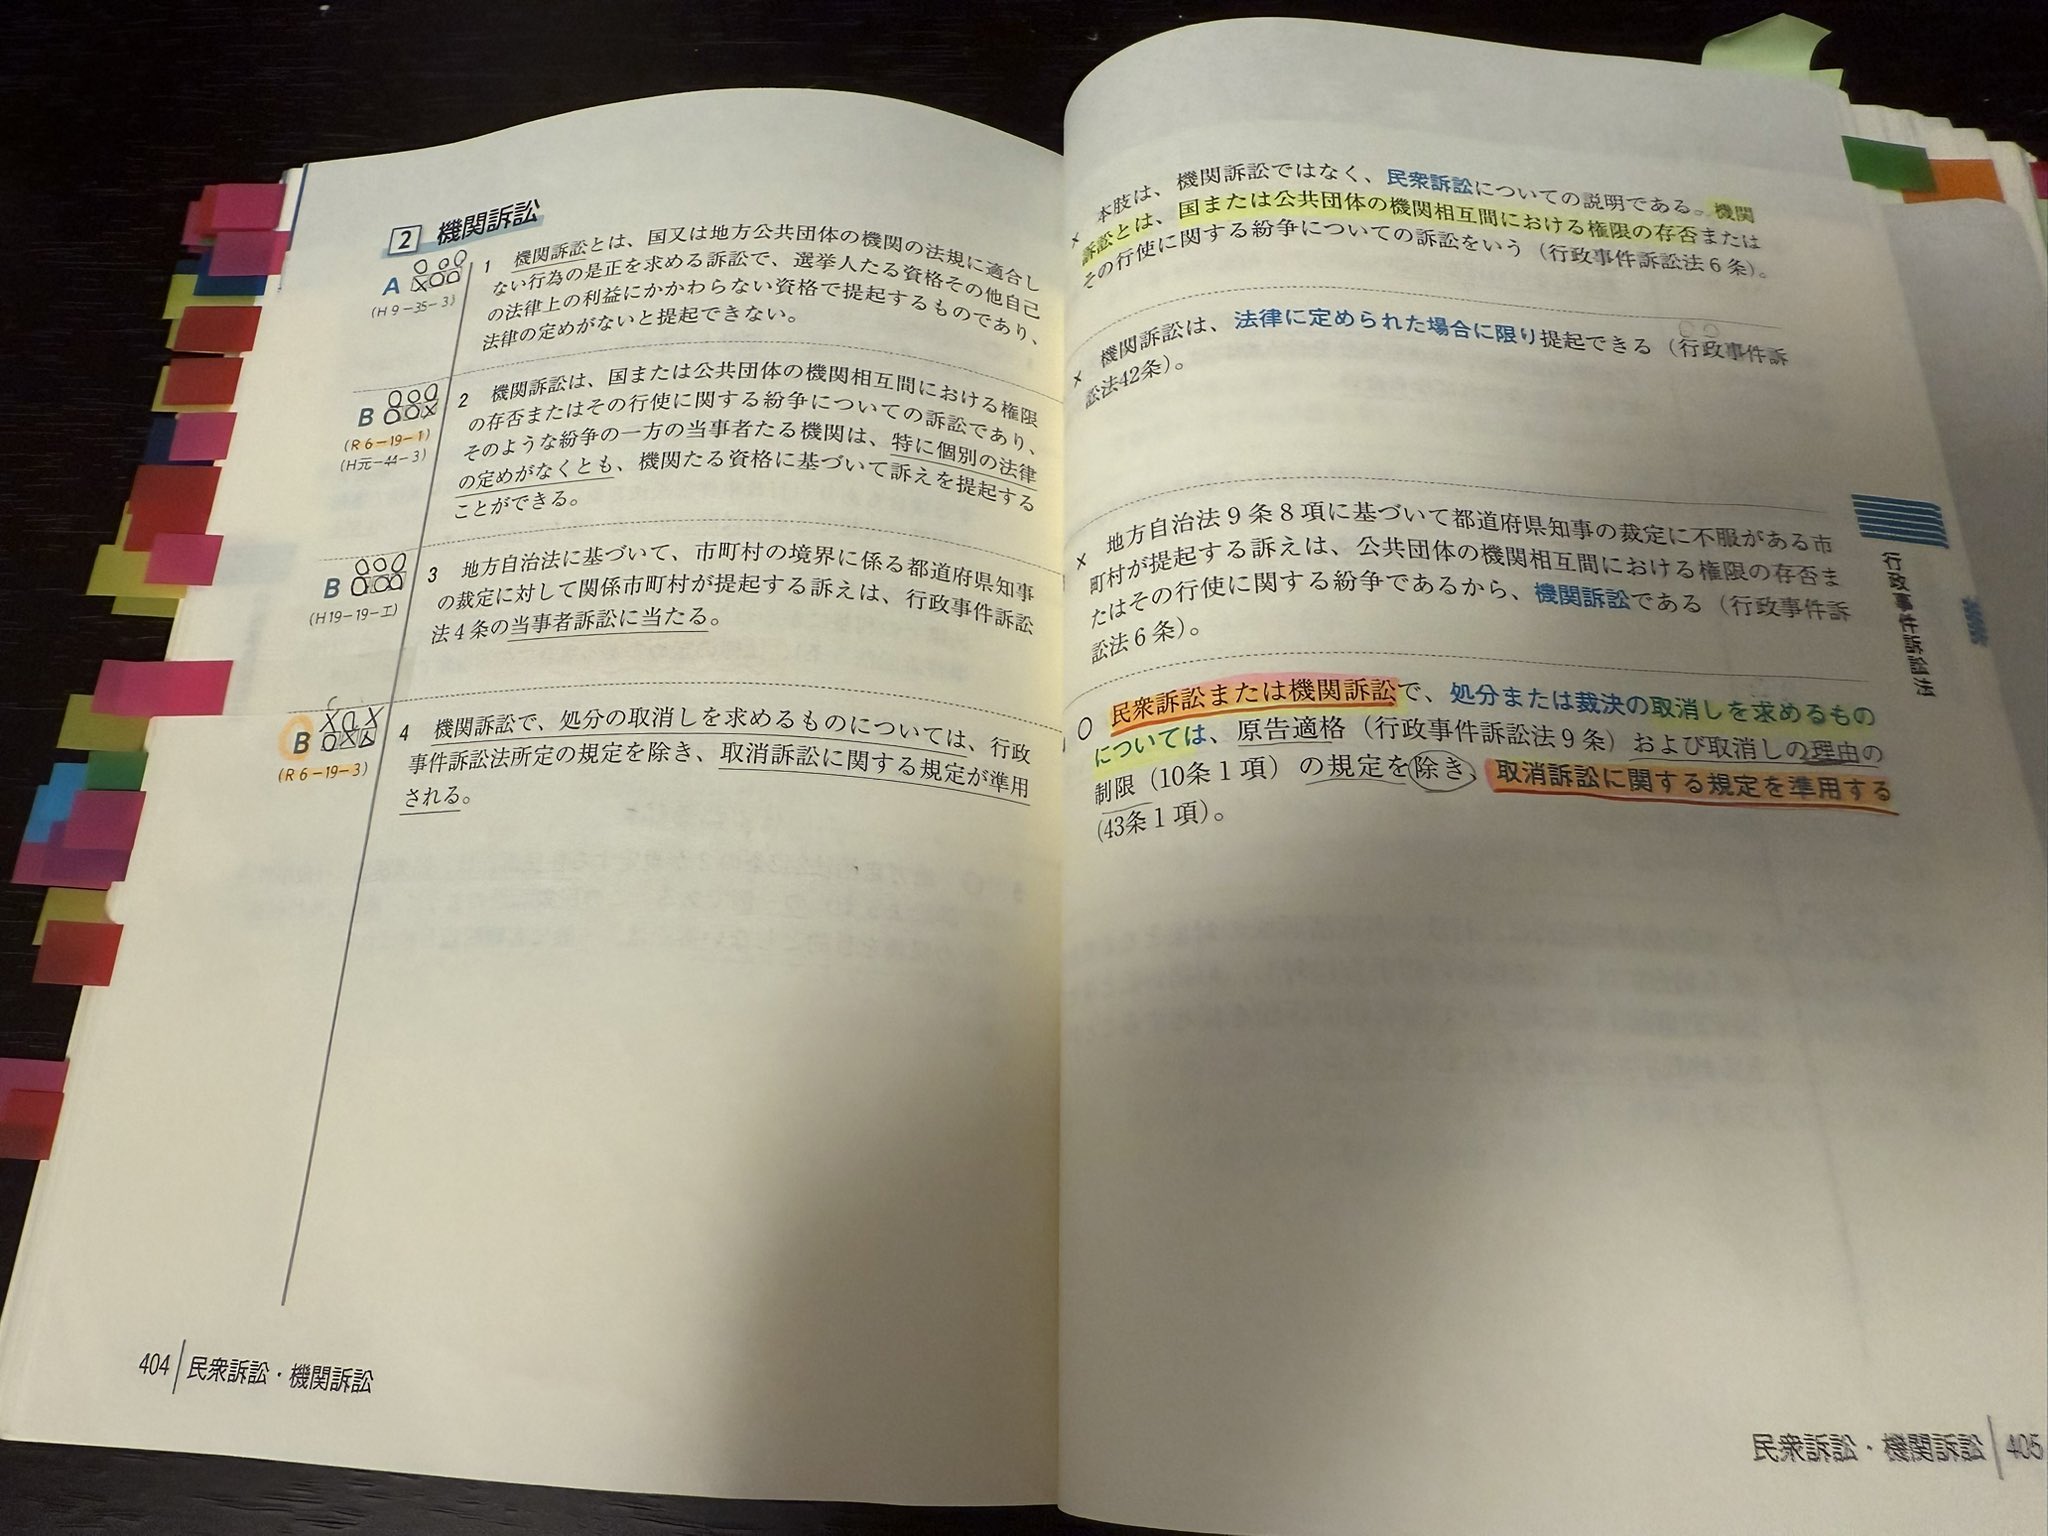 2 機関訴訟
A
(H9-35-3)
1 機関訴訟とは、国又は地方公共団体の機関の法規に適合し
ない行為の是正を求める訴訟で、選挙人たる資格その他自己
の法律上の利益にかかわらない資格で提起するものであり、
法律の定めがないと提起できない。
B
(R6-19-1)
(H元-44-3)
2 機関訴訟は、国または公共団体の機関相互間における権限
の存否またはその行使に関する紛争についての訴訟であり、
そのような紛争の一方の当事者たる機関は、特に個別の法律
の定めがなくとも、機関たる資格に基づいて訴えを提起する
ことができる。
B
(H19-19-エ)
3 地方自治法に基づいて、市町村の境界に係る都道府県知事
の裁定に対して関係市町村が提起する訴えは、行政事件訴訟
法4条の当事者訴訟に当たる。
B
(R6-19-3)
4 機関訴訟で、処分の取消しを求めるものについては、行政
事件訴訟法所定の規定を除き、取消訴訟に関する規定が準用
される。
404 民衆訴訟・機関訴訟
× 本肢は、機関訴訟ではなく、民衆訴訟についての説明である。機関
訴訟とは、国または公共団体の機関相互間における権限の存否または
その行使に関する紛争についての訴訟をいう（行政事件訴訟法6条）。
× 機関訴訟は、法律に定められた場合に限り提起できる（行政事件訴
訟法42条）。
× 地方自治法9条8項に基づいて都道府県知事の裁定に不服がある市
町村が提起する訴えは、公共団体の機関相互間における権限の存否ま
たはその行使に関する紛争であるから、機関訴訟である（行政事件訴
訟法6条）。
○ 民衆訴訟または機関訴訟で、処分または裁決の取消しを求めるもの
については、原告適格（行政事件訴訟法9条）および取消しの理由の
制限（10条1項）の規定を除き、取消訴訟に関する規定を準用する
（43条1項）。
行政事件訴訟法
民衆訴訟・機関訴訟 405